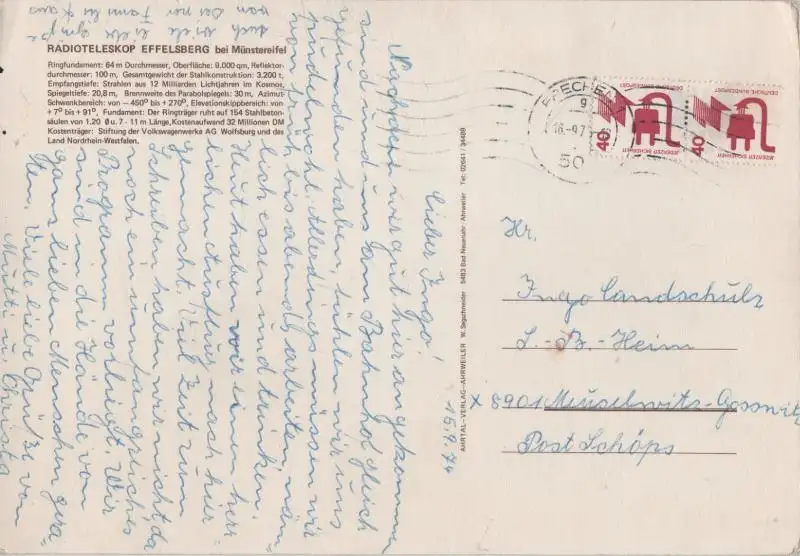 RADIOTELESKOP EFFELSBERG bei Münstereifel
Ringfundament: 64 m Durchmesser, Oberfläche: 9.000 qm, Reflektor-
durchmesser: 100 m, Gesamtgewicht der Stahlkonstruktion: 3.200 t,
Empfangstiefe: Strahlen aus 12 Milliarden Lichtjahren im Kosmos,
Spiegeltiefe: 20,8 m, Brennweite des Parabolspiegels: 30 m, Azimut-
Schwenkbereich: von —450° bis +270°, Elevationskippbereich: von
+7° bis +91°, Fundament: Der Ringträger ruht auf 154 Stahlbeton-
säulen von 1.20 Ø u. 7 - 11 m Länge, Kostenaufwand 32 Millionen DM
Kostenträger: Stiftung der Volkswagenwerke AG Wolfsburg und das
Land Nordrhein-Westfalen.
15.9.74
Lieber Ingo!
Nachdem wir gut hier angekommen
sind und uns am Bahnhof gleich
gefunden haben, fühlen wir uns
pudelwohl. Allerdings müssen wir
von früh bis abends arbeiten, näm-
lich essen und trinken.
Heut haben wir einen herr-
lichen Ausflug nach hier
gemacht. Viel Zeit zum
Schreiben haben wir nicht, da
noch ein umfangreiches
Programm vorliegt. Wir
sind in die Hände von
ganz lieben Menschen gera-
ten. Viele liebe Grüße von
Mutti u. Christa
auch viele Grüße
von Deiner Familie
AHRTAL-VERLAG-AHRWEILER W. Segschneider 5483 Bad Neuenahr-Ahrweiler Tel: 02641 / 34489
FRECHEN
50
DEUTSCHE BUNDESPOST
JEDERZEIT SICHERHEIT
40
DEUTSCHE BUNDESPOST
JEDERZEIT SICHERHEIT
40
Hr.
Ingo Landschulz
L.-B.-Heim
x 8901 Meuselwitz-Gosswitz
Post Schöps